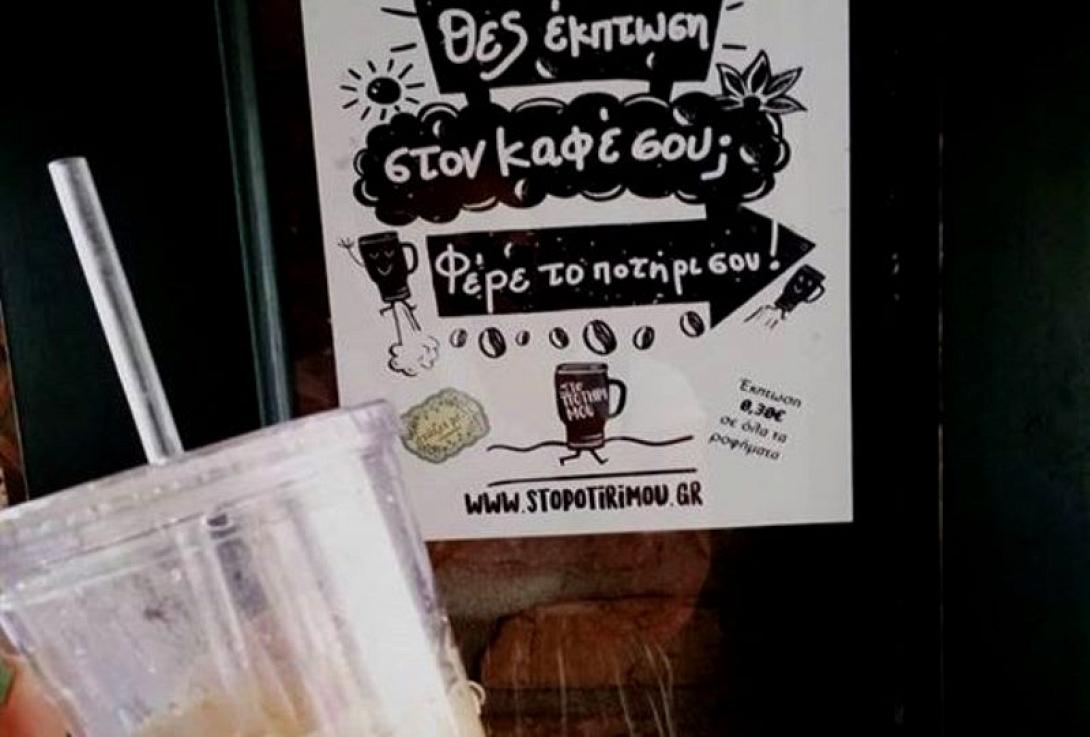 Θες έκπτωση
στον καφέ σου;
Φέρε το ποτήρι σου!
ΣΤΟ
ΠΟΤΗΡΙ
ΜΟΥ
Έκπτωση
0,30€
σε όλα τα
ροφήματα
WWW.STOPOTIRIMOU.GR